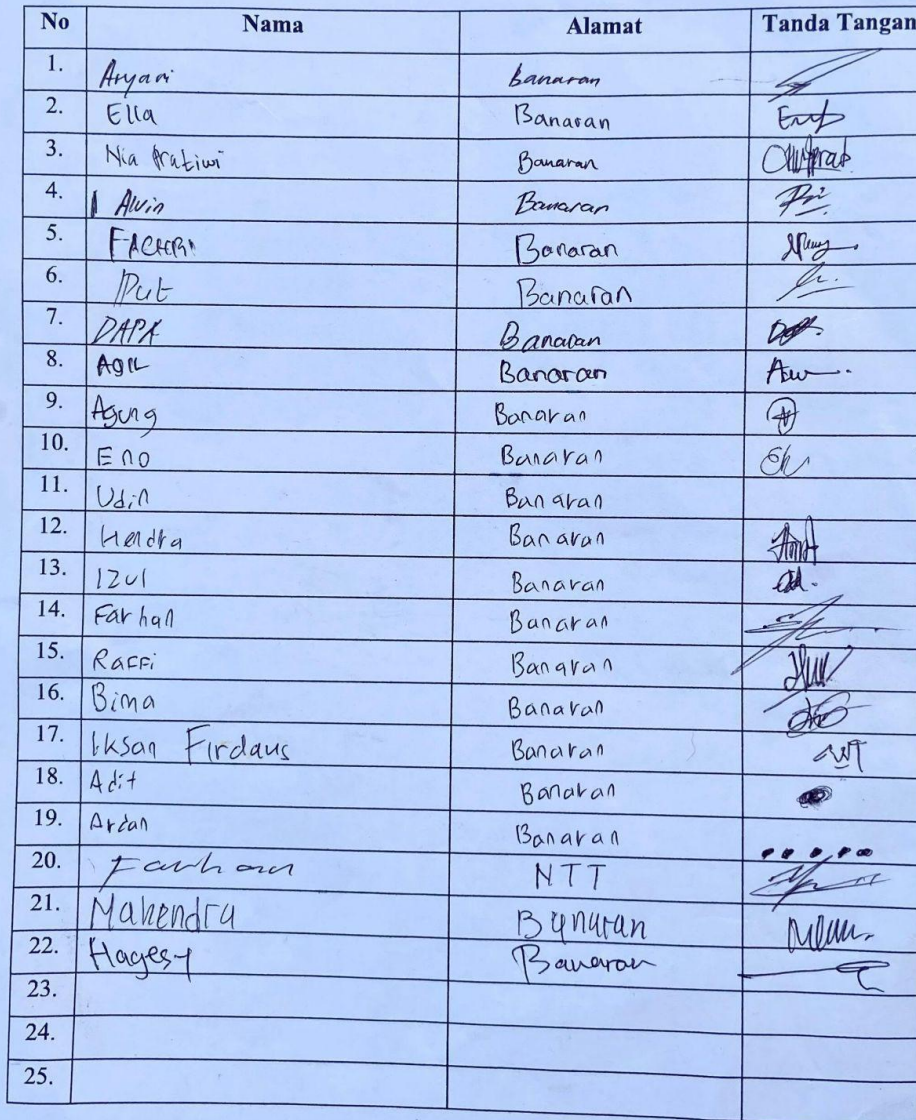 No Nama Alamat Tanda Tangan
1. Aryani Banaran
2. Ella Banaran
3. Nia Pratiwi Banaran
4. Alvin Banaran
5. FACHRI Banaran
6. Put Banaran
7. DAPA Banaran
8. AgIL Banaran
9. Agung Banaran
10. Eno Banaran
11. Udin Banaran
12. Hendra Banaran
13. Izul Banaran
14. Farhan Banaran
15. Raffi Banaran
16. Bima Banaran
17. Iksan Firdaus Banaran
18. Adit Banaran
19. Ardan Banaran
20. Farhan NTT
21. Mahendra Banaran
22. Hagesy Banaran
23.
24.
25.